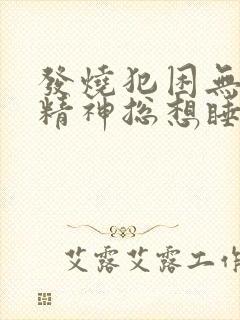 發燒犯困無
精神总想睡
艾露艾露工作